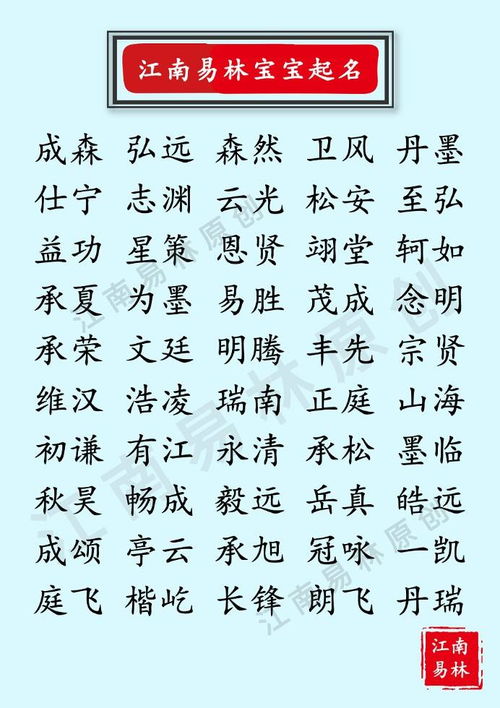 江南易林宝宝起名
成森 弘远 森然 卫风 丹墨
仕宁 志渊 云光 松安 至弘
益功 星策 恩贤 翊堂 轲如
承夏 为墨 易胜 茂成 念明
承荣 文廷 明腾 丰先 宗贤
维汉 浩凌 瑞南 正庭 山海
初谦 有江 永清 承松 墨临
秋昊 畅成 毅远 岳真 皓远
成颂 亭云 承旭 冠咏 一凯
庭飞 楷屹 长锋 朗飞 丹瑞
江南易林原创
江南易林原创
江南易林原创
江南
易林